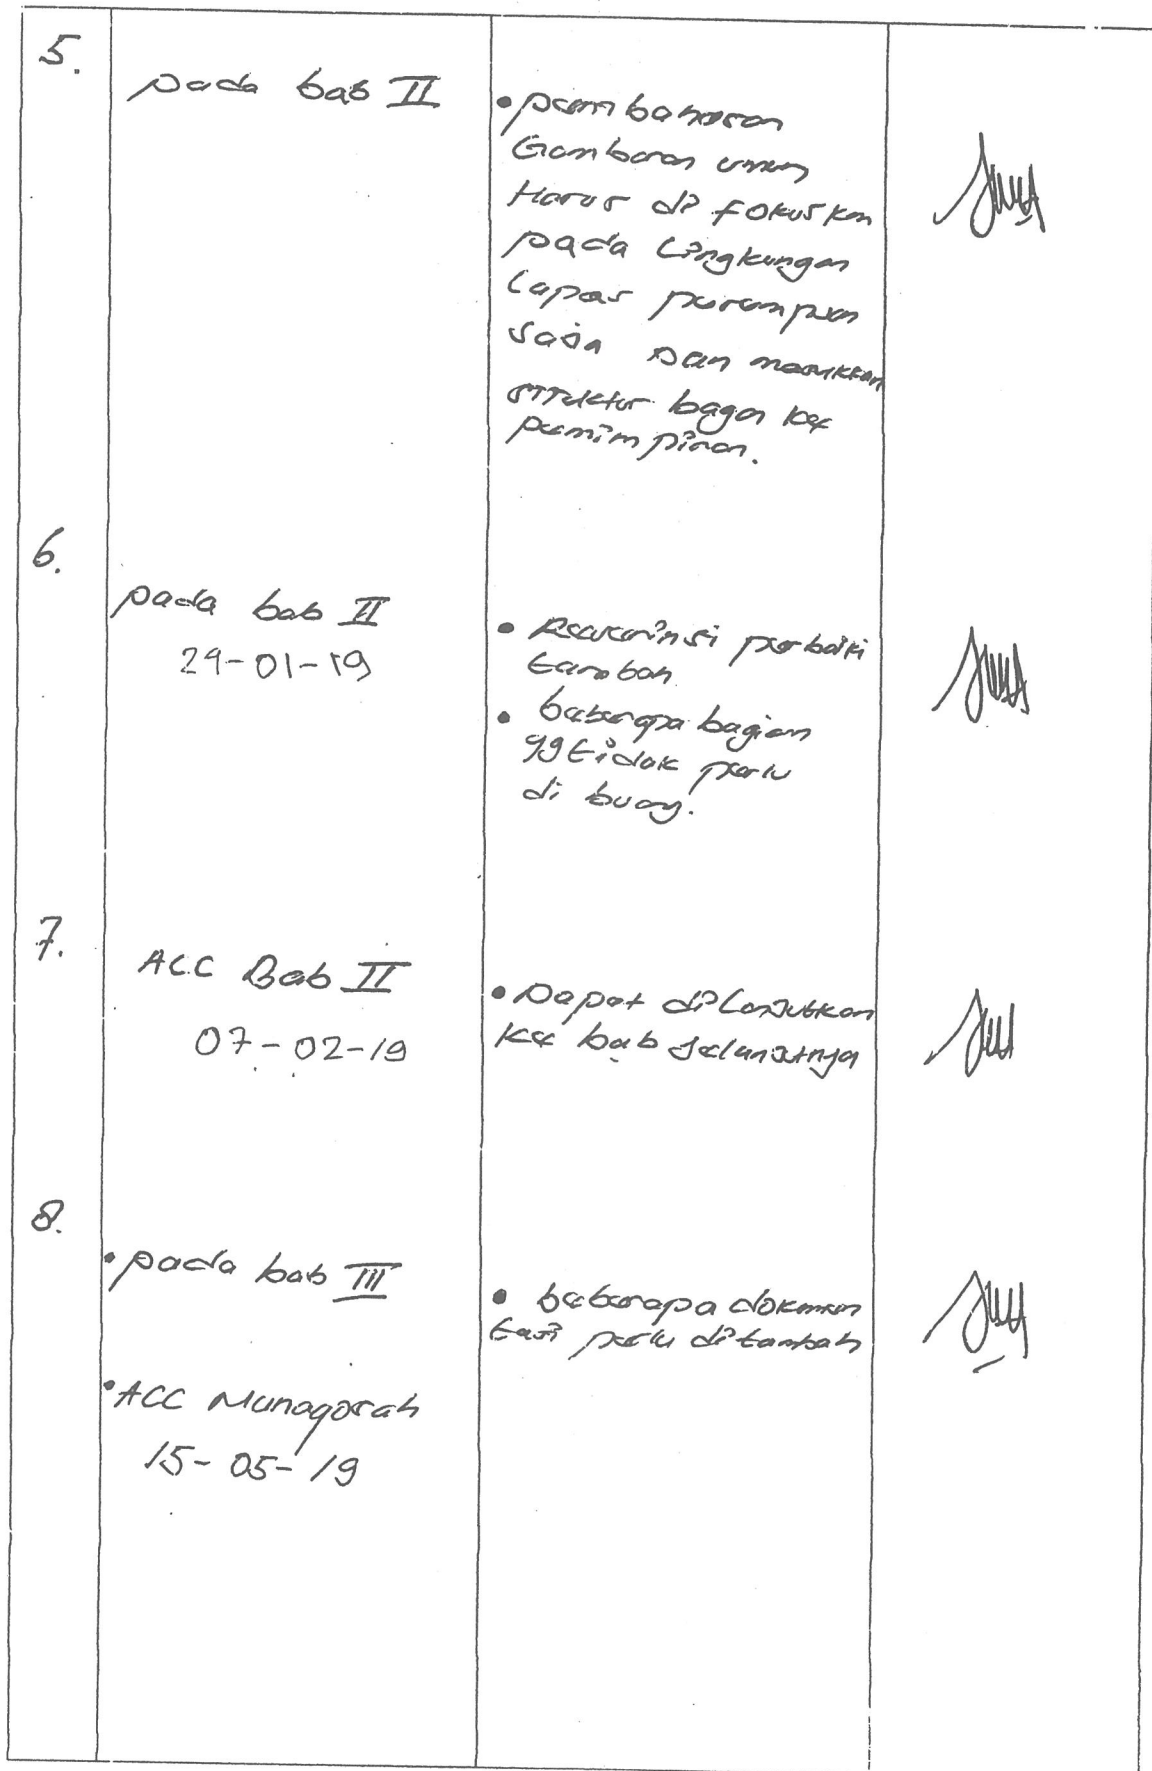 5.
pada bab II
• pembahasan
Gambaran umum
Harus di fokuskan
pada Lingkungan
Lapas perempuan
saja Dan masukkan
struktur bagan ke
pemimpinan.
6.
pada bab II
29-01-19
• perbaiki
• beberapa bagian
yg tidak perlu
di buang.
7.
ACC Bab II
07-02-19
• Dapat dilanjutkan
ke bab selanjutnya
8.
• pada bab III
• beberapa dokumen
tasi perlu ditambah
• ACC Munaqosah
15-05-19